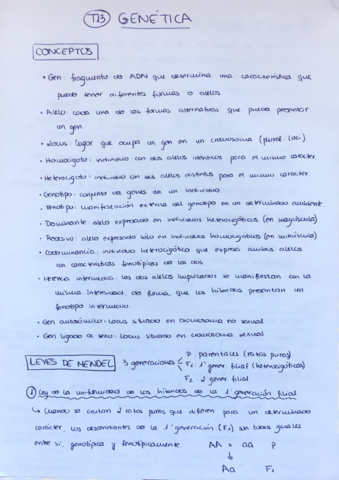 T13) GENÉTICA
CONCEPTOS
• Gen: fragmento de ADN que determina una característica que
puede tener diferentes formas o alelos.
• Alelo: cada una de las formas alternativas que puede presentar
un gen.
• Locus: lugar que ocupa un gen en un cromosoma (plural loci)
• Homocigoto: individuo con dos alelos idénticos para el mismo carácter.
• Heterocigoto: individuo con dos alelos distintos para el mismo carácter
• Genotipo: conjunto de genes de un individuo.
• Fenotipo: manifestación externa del genotipo en un determinado ambiente.
• Dominante: alelo expresado en individuos heterocigóticos (en mayúscula)
• Recesivo: alelo expresado sólo en individuos homocigóticos (en minúscula)
• Codominancia: individuo heterocigótico que expresa ambos alelos
con características fenotípicas de los dos.
• Herencia intermedia: los dos alelos implicados se manifiestan con la
misma intensidad de forma que los híbridos presentan un
fenotipo intermedio.
• Gen autosómico: locus situado en cromosoma no sexual
• Gen ligado a sexo: locus situado en cromosoma sexual.
LEYES DE MENDEL 3 generaciones
P parentales (razas puras)
F1 1ª gener. filial (heterocigóticas)
F2 2ª gener filial
① Ley de la uniformidad de los híbridos de la 1ª generación filial
↳ Cuando se cruzan 2 razas puras que difieren para un determinado
carácter, los descendientes de la 1ª generación (F1) son todos iguales
entre sí, genotípica y fenotípicamente. AA x aa P
↓
Aa F1